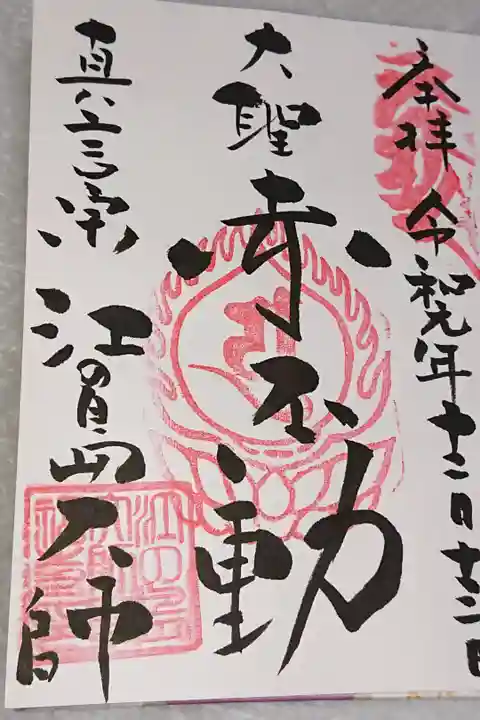 奉拝 令和元年十二月十六日
大聖赤不動
真言宗 江の島大師